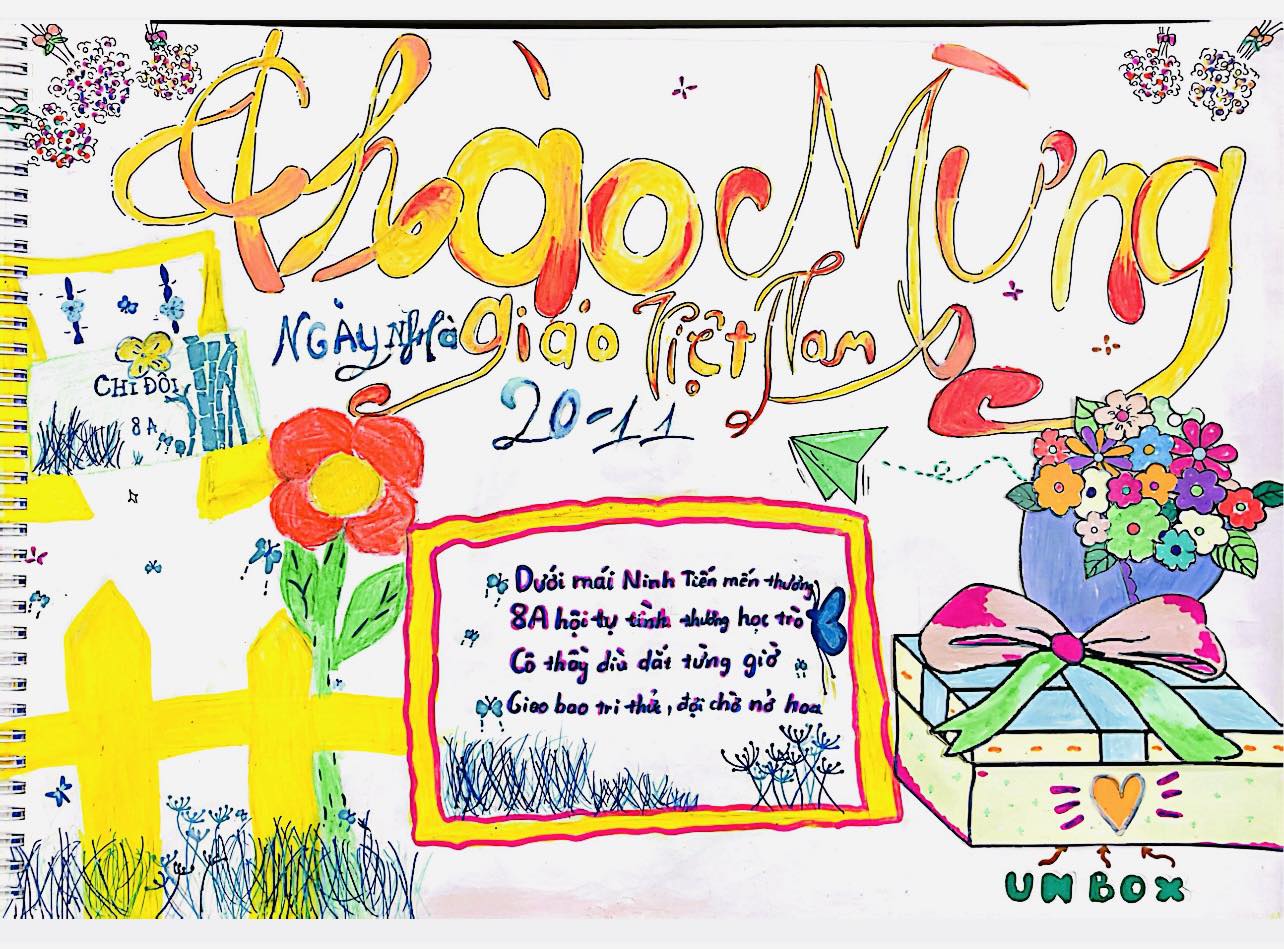 Chào Mừng
NGÀY Nhà giáo Việt Nam
20-11
CHI ĐỘI
8A
Dưới mái Ninh Tiến mến thương
8A hội tụ tình thương học trò
Cô thầy dìu dắt từng giờ
Gieo bao tri thức, đợi chờ nở hoa
UNBOX